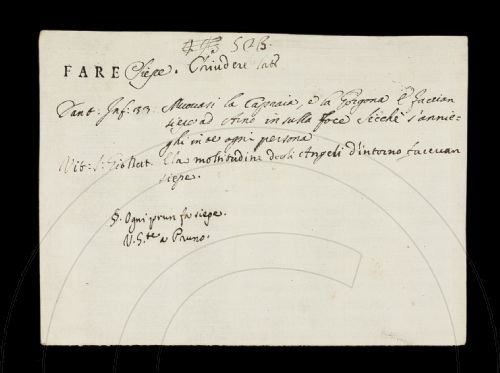 513.
FARE Siepe. Chiudere
Dant: Inf: 33. Muovasi la Capraia, e la Gorgona E faccian
siepe ad Arno in sulla foce Sicch'è s'annie-
ghi in te ogni persona
Vit: S: Gio Bat. E la moltitudine degli Angeli d'intorno facevan
siepe.
§. Ogni prun fa siepe.
V. a Pruno.